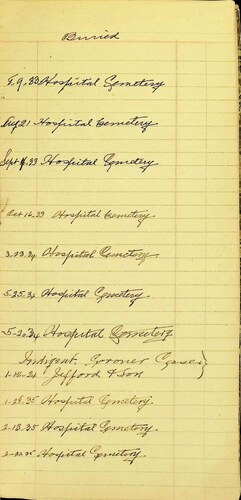 Buried
8.9.33 Hospital Cemetery
Aug 21 Hospital Cemetery
Sept 9.33 Hospital Cemetery
Oct 16.33 Hospital Cemetery
3.23.34 Hospital Cemetery
5.25.34 Hospital Cemetery
5-20.34 Hospital Cemetery
Indigent. Coroner Cases}
1-18-24 Jefford & Son
1-28.35 Hospital Cemetery
2-13.35 Hospital Cemetery
Hospital Cemetery